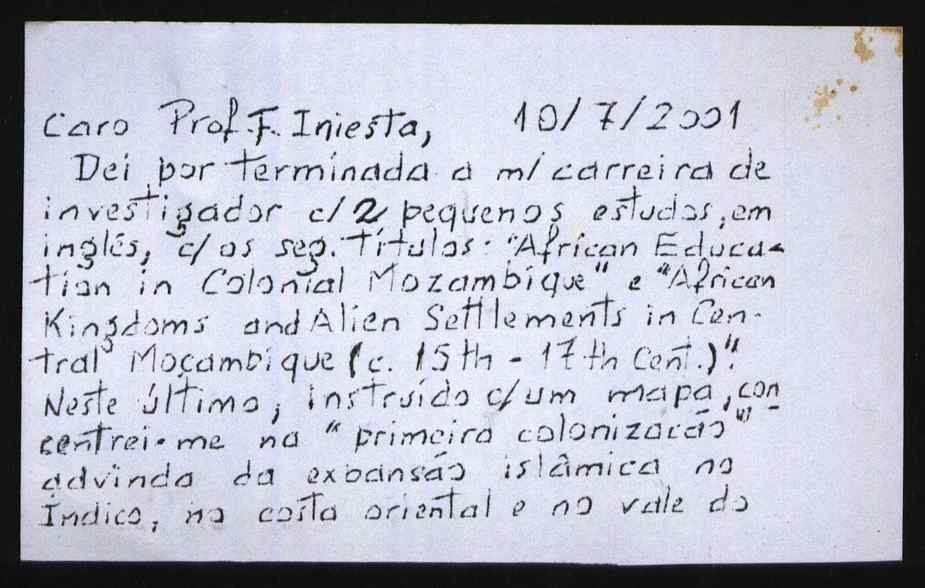 Caro Prof. F. Iniesta, 10/7/2001
Dei por terminada a m/ carreira de
investigador c/2 pequenos estudos, em
inglês, c/ os seg. títulos: "African Educa-
tion in Colonial Mozambique" e "African
Kingdoms and Alien Settlements in Cen-
tral Moçambique (c. 15th - 17th Cent.)".
Neste último, instruído c/ um mapa, con
centrei-me na "primeira colonização"
advinda da expansão islâmica no
Índico, na costa oriental e no vale do